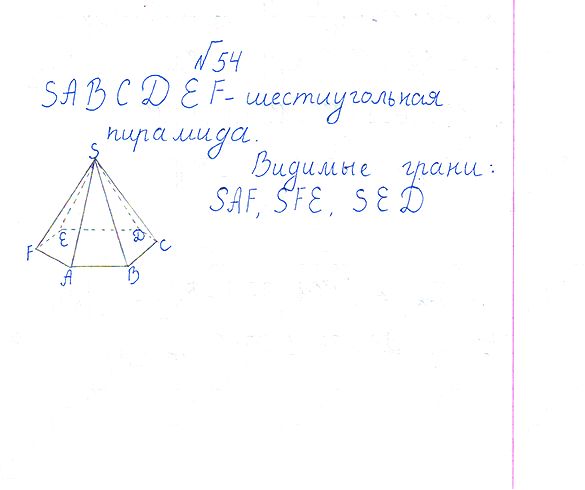 №54
SABCDEF - шестиугольная
пирамида.
Видимые грани:
SAF, SFE, SED
S
E
D
F
C
A
B